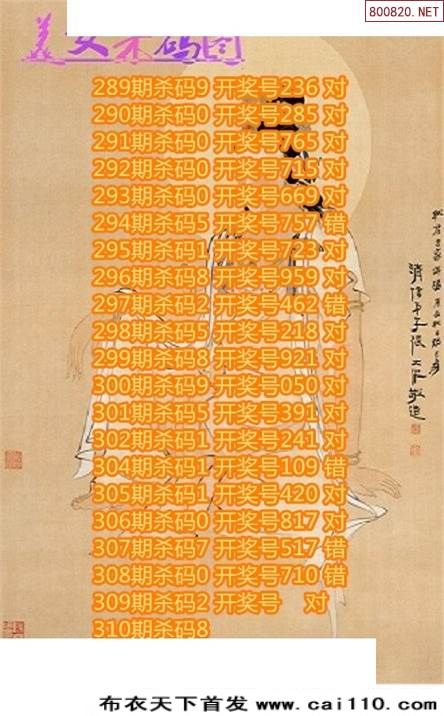 800820.NET
美女杀码图
289期杀码9 开奖号236 对
290期杀码0 开奖号285 对
291期杀码0 开奖号765 对
292期杀码0 开奖号715 对
293期杀码0 开奖号669 对
294期杀码5 开奖号757 错
295期杀码1 开奖号723 对
296期杀码8 开奖号959 对
297期杀码2 开奖号462 错
298期杀码5 开奖号218 对
299期杀码8 开奖号921 对
300期杀码9 开奖号050 对
301期杀码5 开奖号391 对
302期杀码1 开奖号241 对
304期杀码1 开奖号109 错
305期杀码1 开奖号420 对
306期杀码0 开奖号817 对
307期杀码7 开奖号517 错
308期杀码0 开奖号710 错
309期杀码2 开奖号 对
310期杀码8
布衣天下首发 www.cai110.com